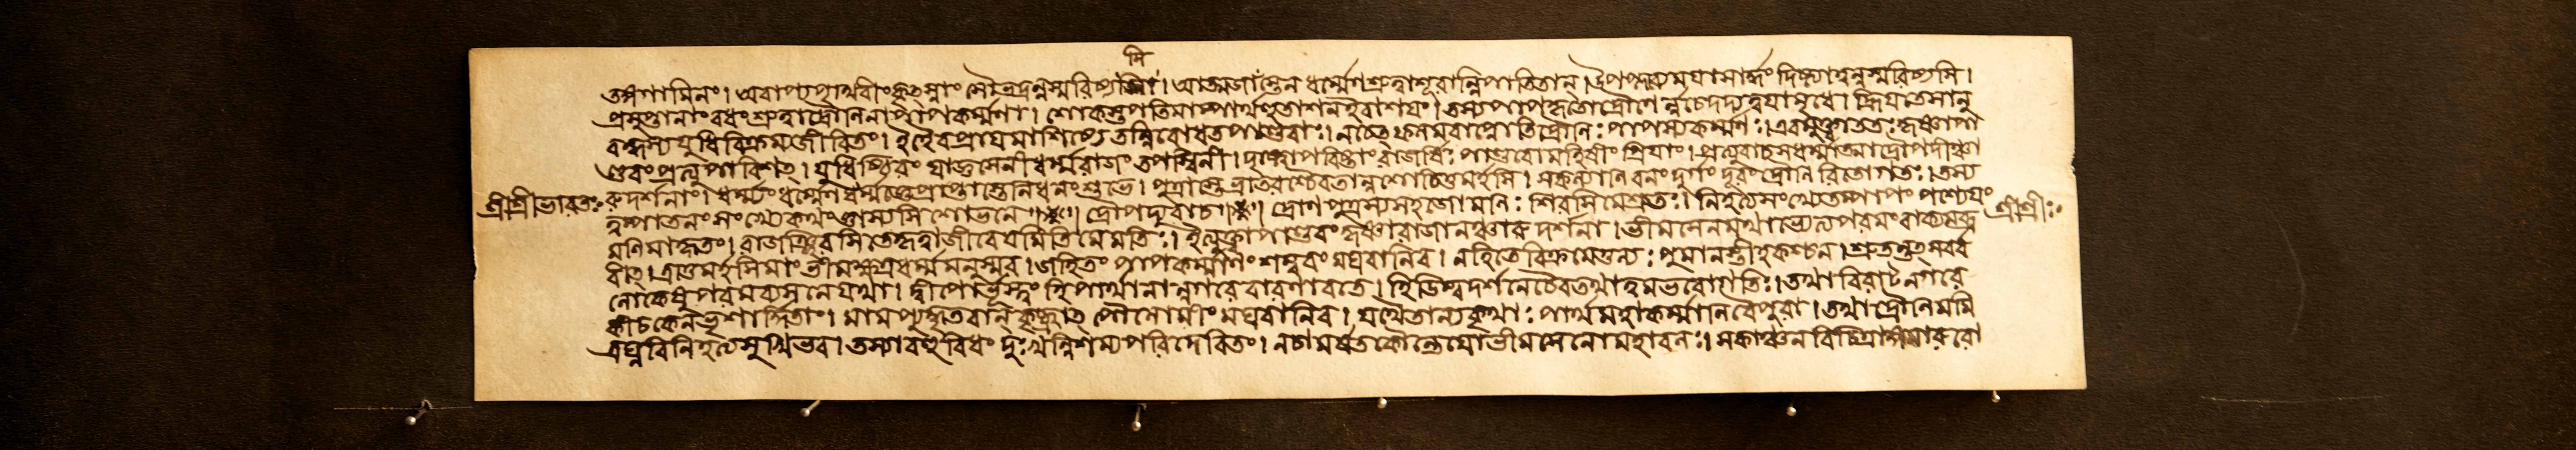 মি
তঙ্গগামিনং। অবাপ্যপৃথিবীংকৃৎস্নাং সৌভদ্রন্নস্মরিষ্যসি। আত্মজাংস্তেন ধর্ম্মেণশ্রুত্বাশূরান্নিপাতিতান্। উপপ্লব্যেময়াসার্দ্ধং দিষ্ট্যাত্বন্নস্মরিষ্যসি।
প্রসুপ্তানাংবধংশ্রুত্বাদ্রৌণিনাপাপকর্ম্মণা। শোকস্তপতিমাম্পার্থহুতাশনইবাশয়ং। তস্যপাপকৃতোদ্রৌণের্ন্নচেদদ্যত্বয়ামৃধে। হ্রিয়তেসানু
বন্ধস্যযুধিবিক্রম্যজীবিতং। ইহৈবপ্রায়মাশিষ্যে তন্নিবোধতপাণ্ডবাঃ। নচেৎফলমবাপ্নোতিদ্রৌণিঃ পাপস্যকর্ম্মণঃ। এবমুক্ত্বাততঃকৃষ্ণাপা
ণ্ডবংপ্রত্যুপাবিশৎ। যুধিষ্ঠিরং যাজ্ঞসেনীধর্ম্মরাজং তপস্বিনী। দৃষ্ট্বোপবিষ্টাংরাজর্ষিঃ পাণ্ডবোমহিষীংপ্রিয়াং। প্রত্যুবাচসধর্ম্মাত্মাদ্রৌপদীঞ্চা
রুদর্শনাং। ধর্ম্ম্যংধর্ম্মেণধর্ম্মজ্ঞেপ্রাপ্তাস্তেনিধনংশুভে। পুত্রাস্তেভ্রাতরশ্চৈবতান্নশোচিতুমর্হসি। সকল্যাণিবনংদুর্গং দূরংদ্রৌণিরিতোগতঃ। তস্য
শ্রীশ্রীভারতঃ
ত্বম্পাতনংসংখ্যেকথংজ্ঞাস্যসিশোভনে॥ দ্রৌপদ্যুবাচ॥ দ্রোণপুত্রস্যসহজোমণিঃ শিরসিমেশ্রুতঃ। নিহত্যসংখ্যেতম্পাপং পশ্যেয়ং
শ্রীশ্রীঃ
মণিমাহৃতং। রাজঞ্ছিরসিতেকৃত্বাজীবেয়মিতিমেমতিঃ। ইত্যুক্ত্বাপাণ্ডবংকৃষ্ণারাজানঞ্চারুদর্শনা। ভীমসেনমথাভ্যেত্যপরমংবাক্যমব্র
বীৎ। ত্রাতুমর্হসিমাংভীমক্ষত্রধর্ম্মমনুস্মর। জহিতং পাপকর্ম্মাণংশম্বরং মঘবানিব। নহিতেবিক্রমেতুল্যঃ পুমানস্তীহকশ্চন। শ্রুতন্তৎসর্ব্ব
লোকেষুপরমব্যসনেযথা। দ্বীপোভূস্ত্বংহিপার্থানান্নগরেবারণাবতে। হিডিম্বদর্শনেচৈবতথাত্বমভবোগতিঃ। তথাবিরাটনগরে
কীচকেনভৃশার্দ্দিতাং। মামপ্যুদ্ধৃতবান্ কৃচ্ছ্রাৎ পৌলোমীং মঘবানিব। যথৈতান্যকৃথাঃ পার্থমহাকর্ম্মাণিবৈপুরা। তথাদ্রৌণিমমি
ত্রঘ্নবিনিহত্যসুখীভব। তস্যাবহুবিধং দুঃখান্নিশম্যপরিদেবিতং। নচামর্ষতকৌন্তেয়োভীমসেনোমহাবলঃ। সকাঞ্চনবিচিত্রাঙ্গমারুরো